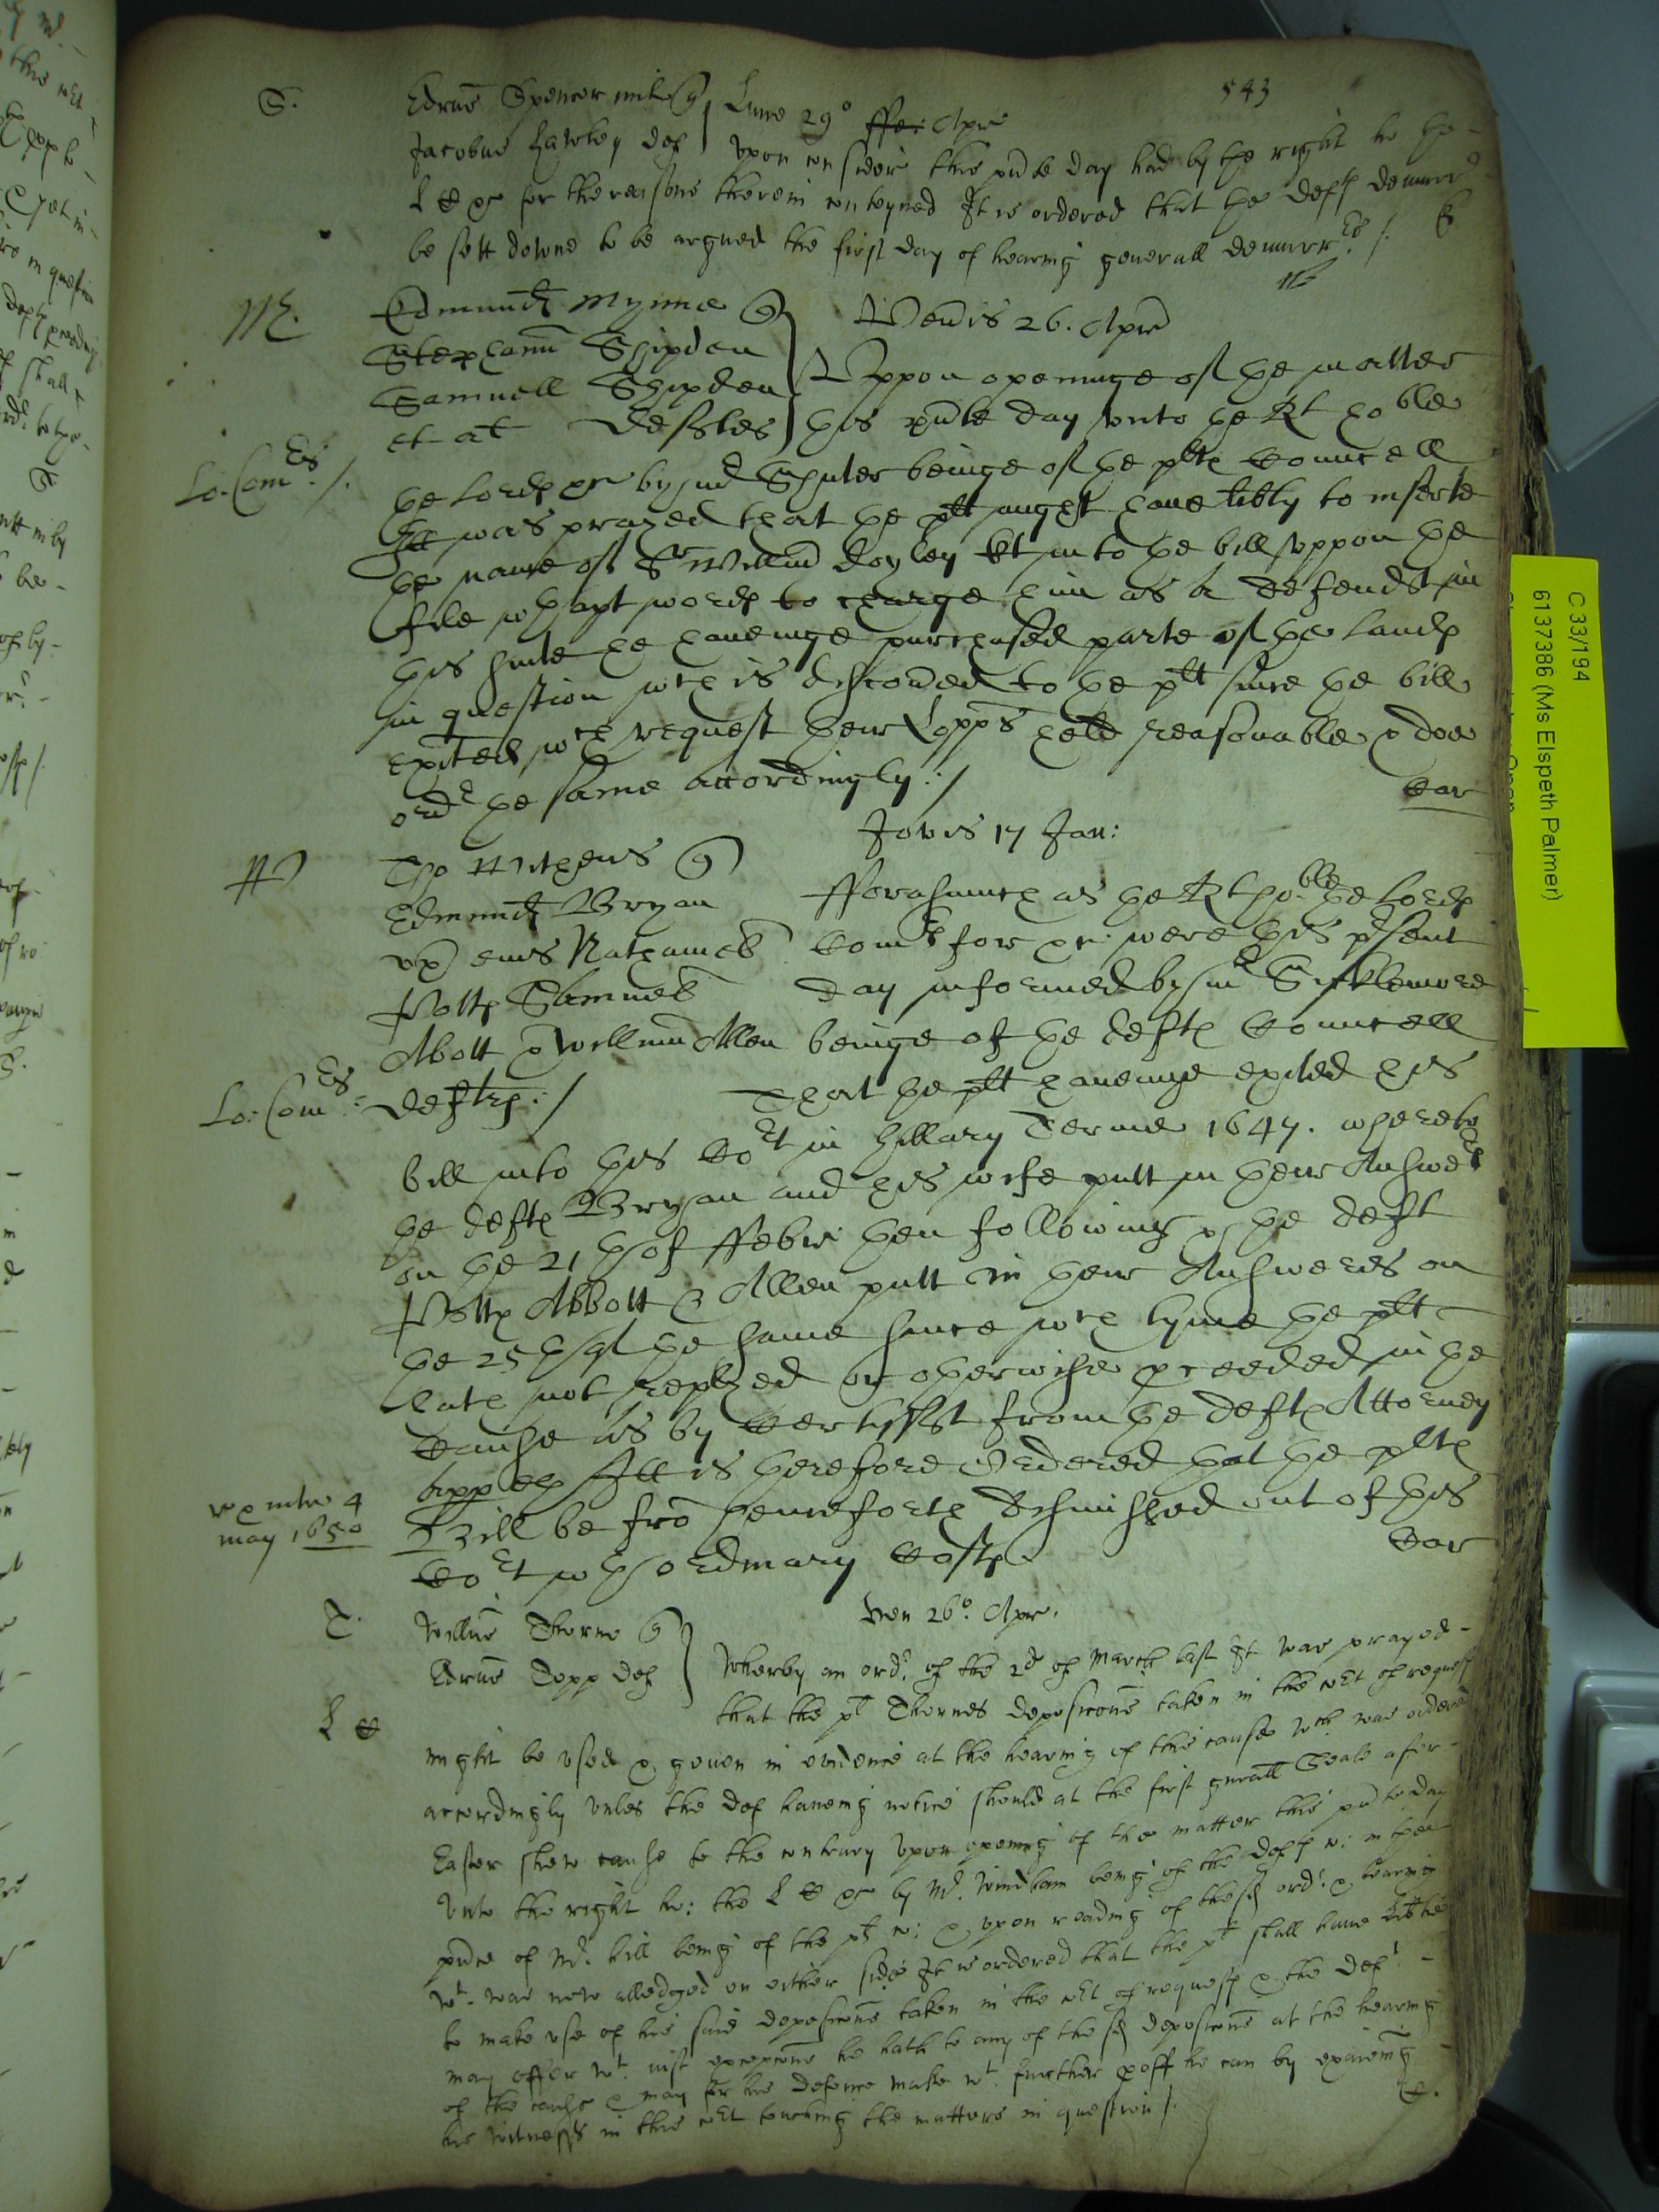 543
S. Edrus Spencer mil q Lune 29° ffe: Apr
Jacobus Hawley def vpon consider this pnte day had by the right ho the
L C &c for the reasons therein conteyned It is ordered that the defts demurr
be sett downe to be argued the first day of hearing generall demurrrs /.
M. Edmund Mynne q Veneris 26. Apr
Stephanu Shipden
Samuell Shipden Vppon openinge of the matter
et al defftes this pnte day vnto the Rt hoble
Lo: Comrs /. the Lords &c by mr Shuter beinge of the plts Councell
Itt was prayed that the plt might haue libty to inserte
the name of Sr Willm Doyley kt into the bill vppon the
file wth apt words to charge him as a defendt in
this suite he haueinge purchased parte of the lands
in question wch is discoued to the plt since the bill
exhited wch request their Lopps held reasonable & doe
ordr the same accordingly ./ Car
Jovis 17 Jan:
Tho Withens q
Edmund Bryan fforasmuch as the Rt hoble the Lords
vx eius Nathaniel Comrs for &c: were this psent
Potts Samuel day informed by mr Sicklemore
Abott & Willmu Allen beinge of the defts Councell
Lo: Comrs: defts ./ That the plt haueinge exited his
bill into this Cort in Hillary Terme 1647. whereto
the defts Bryan and his wife putt in their Answer
on the 21th of ffebr: then following & the deft
Potts Abbott & Allen putt in their Answeres on
the 25th of the same since wch tyme the plt
hath not replyed or otherwise pceeded in the
Cause as by Certifficat from the defts Attorney
appeth Itt is therefore Ordered that the plts
4 Bill be fro henceforth dismissed out of this
may 1650 Cort wth ordinary Costs Car
T. Willus Thorne q Ven 26°. Apr.
Edrus Topp def Wherby an ordr of the 2d of March last It was prayed
that the pl Thornes deposicons taken in the cort of requests
L C might be vsed & geuen in evidence at the hearing of this cause wch was ordered
accordingly vnles the def haueing notice should at the first gnrall Seale after
Easter shew cause to the contrary Vpon opening of the matter this pnte day
vnto the right ho: the L C &c by Mr. Windham being of the defts co: in the
pnce of Mr. Hill being of the pts co: & vpon reading of the sd ordr & hearing
wt. was now alledged on either side It is ordered that the pt shall haue libtie
to make vse of his said deposicons taken in the cort of requests & the deft
may offer wt. iust excepcons he hath to any of the sd deposicons at the hearing
of the cause & may for his defence make wt. further proff he can by exaieing
his witnesses in this cort touching the matters in question /.
C 33/194
6137386 (Ms Elspeth Palmer)